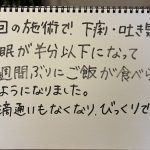 回の施術で 下痢・吐き気
眠が半分以下になって
週間ぶりにご飯が食べら
ようになりました。
滴通いもなくなり、びっくりで